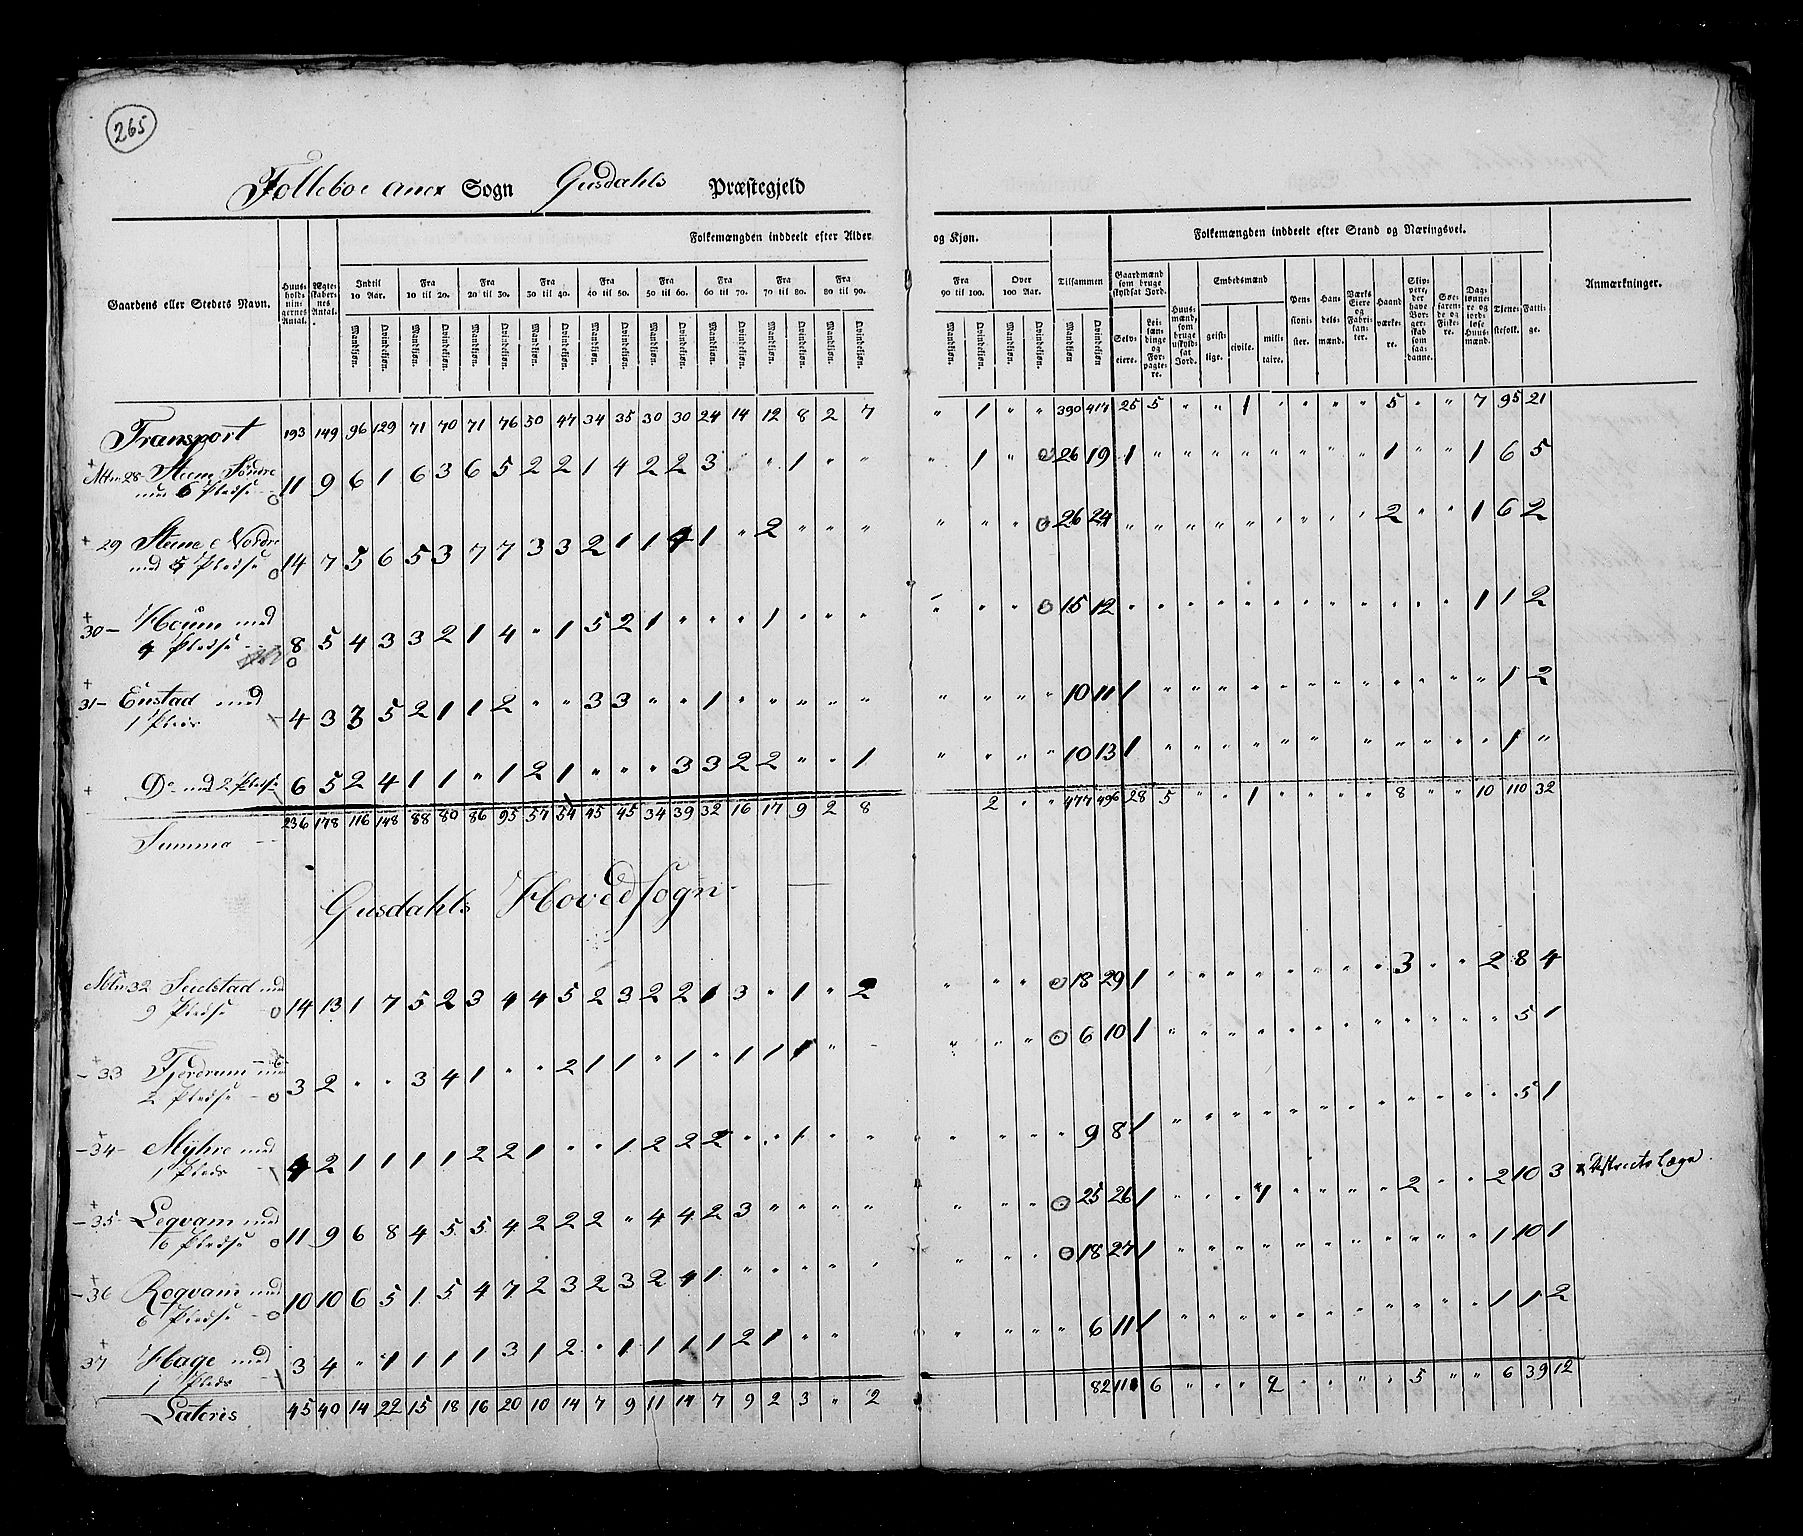 265
Folleboe anex Sogn Gusdahls Præstegjeld
Folkemængden inddeelt efter Alder og Kjøn. Folkemængden inddeelt efter Stand og Næringsvei.
Gaardens eller Stedets Navn. Huusholdningernes Antal. Ægteskabernes Antal. Indtil 10 Aar. Fra 10 til 20. Fra 20 til 30. Fra 30 til 40. Fra 40 til 50. Fra 50 til 60. Fra 60 til 70. Fra 70 til 80. Fra 80 til 90. Fra 90 til 100. Over 100 Aar. Tilsammen Gaardmænd som bruge skyldsat Jord. Huusmænd, som bruge uskyldsat Jord. Embedsmænd Pensionister. Handelsmænd. Værks Eiere og Fabrikanter. Haandværkere. Skippere, der have Borgerskab som saadanne. Søefarende og Fiskere. Daglønnere og jordløse Huusmænd. Tjenestefolk. Fattige. Anmærkninger.
Mandkjøn. Qvindekjøn. Selveiere. Leilændinge og Forpagtere. geistlige. civile. militaire.
Transport 193 149 96 129 71 70 71 76 50 47 34 35 30 30 24 14 12 8 2 7 " 1 " " 390 417 25 5 " " 1 " " " " 5 " " 7 95 21
Mtn 28 - Steen Søndre med 6 Pladse 11 9 6 1 6 3 6 5 2 2 1 4 2 2 3 " 1 " " " 1 " 26 19 1 " " " " " " " " 1 " " 1 6 5
29 Steene Nordre med 5 Pladse 14 7 5 6 5 3 7 7 3 3 2 1 1 4 1 " 2 " " " " " " 26 24 " " " " " " " " " 2 " " 1 6 2
30 - Houm med 4 Pladse 8 5 4 3 3 2 1 4 " 1 5 2 1 " " " 1 " " " " " " 15 12 " " " " " " " " " " " " 1 1 2
31 - Enstad med 1 Plads 4 3 3 5 2 1 1 2 " " 3 3 " " 1 " " " " " " " " " 10 11 1 " " " " " " " " " " " " 1 2
Do med 2 Pladse 6 5 2 4 1 1 " 1 2 1 " " " 3 3 2 2 " " 1 " " " " 10 13 1 " " " " " " " " " " " 1 "
Summa 236 178 116 148 88 80 86 95 57 54 45 45 34 39 32 16 17 9 2 8 2 " " 477 496 28 5 " " 1 " " " " 8 " " 10 110 32
Gusdahls Hovedsogn
Mtn 32 Suelstad med 9 Pladse 14 13 1 7 5 2 3 4 4 5 2 3 2 2 1 3 " 1 " 2 " " " 18 29 1 " " " " " " " " 3 " " 2 8 4
33 Fjerdrum med 2 Pladse 3 2 " " 3 4 1 " " 2 1 1 " 1 " 1 1 1 " " " " 6 10 1 " " " " " " " " " " " " 5 1
34 - Myhre med 1 Plads 4 2 1 1 1 1 2 2 1 " " 1 2 2 2 " " 1 " " " " " " 9 8 1 " " " " " " " " " " " " 5 1
35 - Legvam med 6 Pladse 11 9 6 8 4 5 5 4 2 2 2 " 4 4 2 3 " " " " " " " 25 26 1 " " " 1 " " " " 2 " " 2 10 3
36 Rogvam med 6 Pladse 10 10 6 5 1 5 4 7 2 3 2 3 2 4 1 " " " " " " " " 18 27 1 " " " " " " " " " " " 1 10 1
37 Hage med 1 Plads 3 4 " 1 1 1 1 3 1 2 " 1 1 1 1 2 1 " " " " " " 6 11 1 " " " " " " " " " " " 1 1 2
Lateris 45 40 14 22 15 18 16 20 10 14 7 9 11 14 7 9 2 3 " 2 82 111 6 " " " 2 " " " " 5 " " 6 39 12